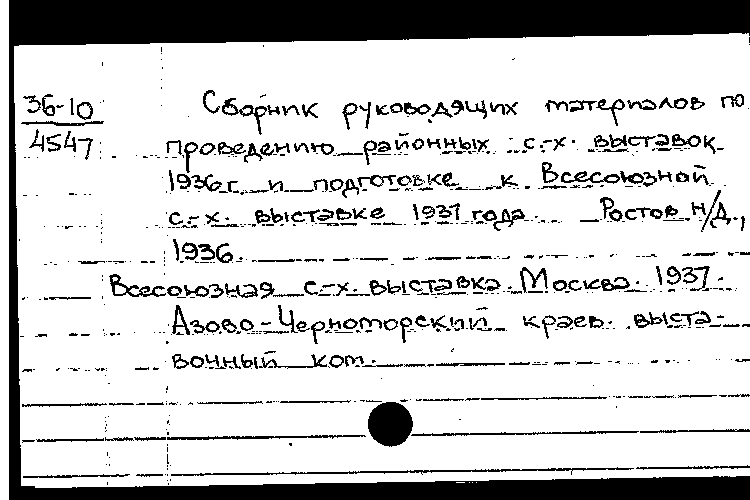 36-10
4547
Сборник руководящих материалов по
проведению районных с.-х. выставок
1936 г. и подготовке к Всесоюзной
с.-х. выставке 1937 года. Ростов н/Д.,
1936.
Всесоюзная с.-х. выставка. Москва. 1937.
Азово-Черноморский краев. выста-
вочный ком.